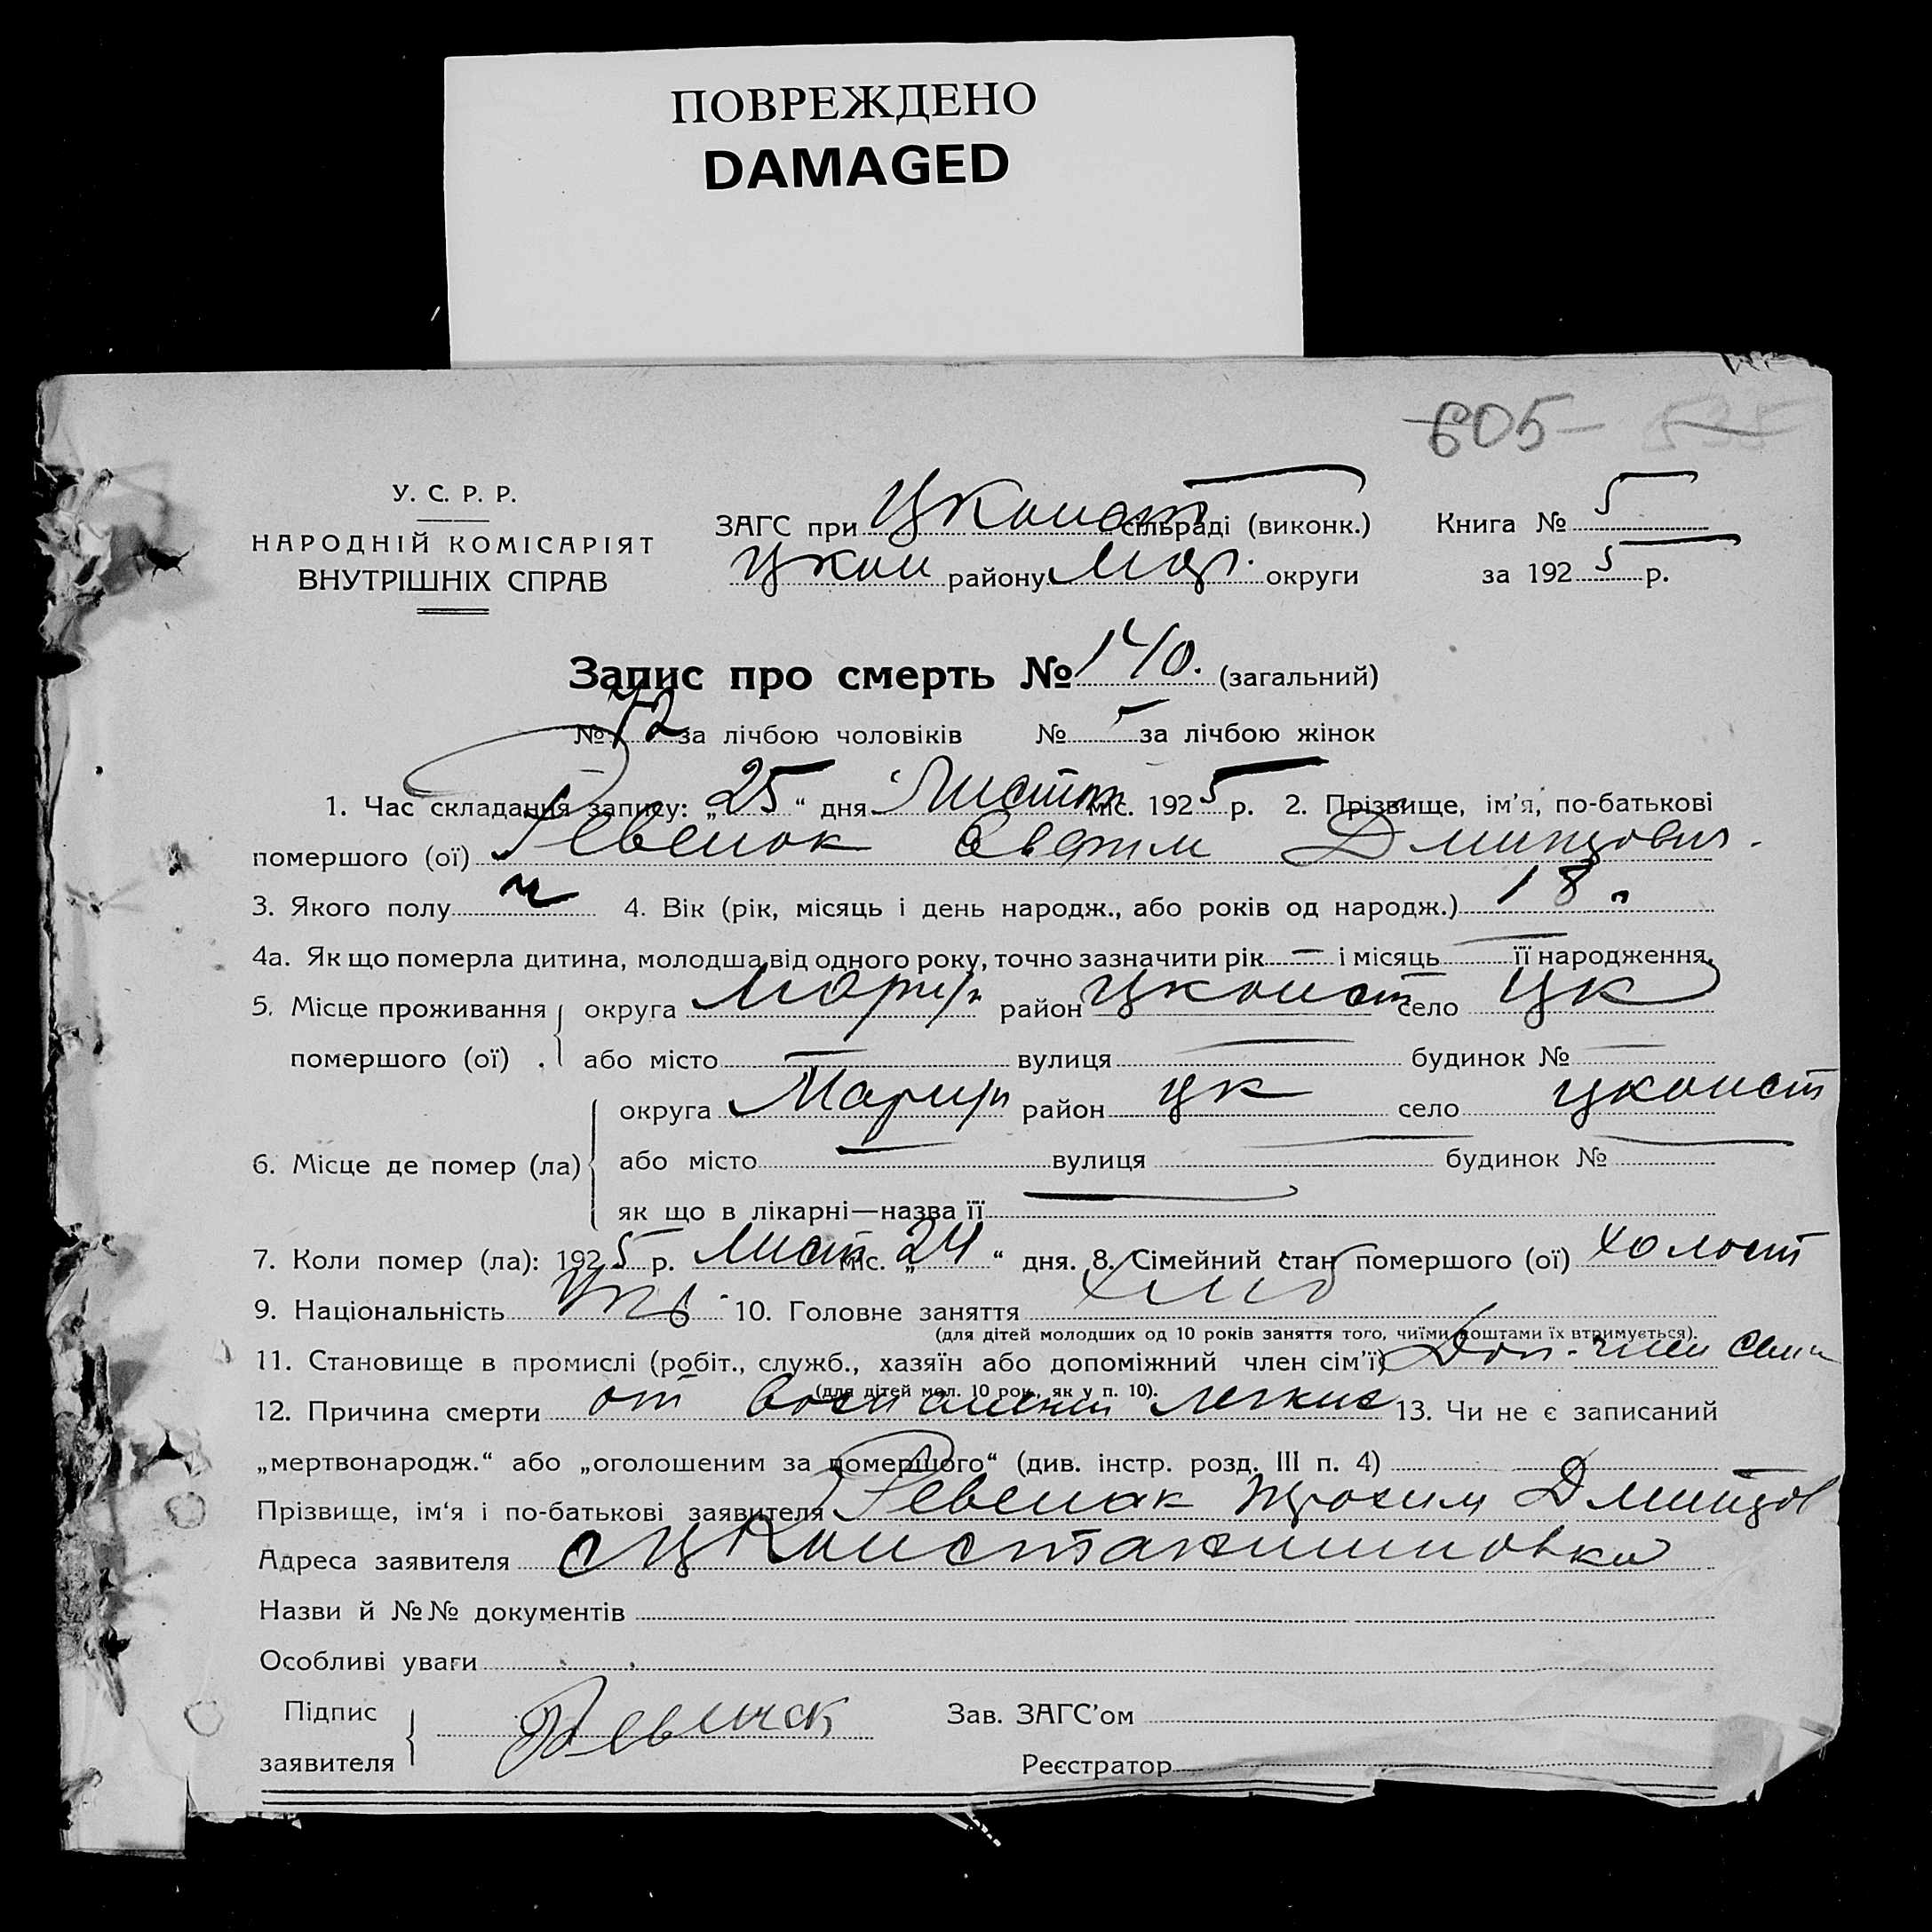 ПОВРЕЖДЕНО
DAMAGED
605-
У. С. Р. Р.
НАРОДНІЙ КОМІСАРІЯТ
ВНУТРІШНІХ СПРАВ
ЗАГС при ЦКонст сільраді (виконк.)
Цкон району Мар. округи
Книга № 5
за 1925 р.
Запис про смерть № 140. (загальний)
№ 72 за лічбою чоловіків № за лічбою жінок
1. Час складання запису: „25“ дня Листт міс. 1925 р. 2. Прізвище, ім'я, по-батькові
помершого (ої) Ревенок Дмитрович.
3. Якого полу ч 4. Вік (рік, місяць і день народж., або років од народж.) 18 л
4а. Як що померла дитина, молодша від одного року, точно зазначити рік — і місяць — її народження.
5. Місце проживання помершого (ої) . округа Маріуп район Цконст село ЦК
або місто — вулиця — будинок № —
6. Місце де помер (ла) округа Маріуп район ЦК село Цконст
або місто — вулиця — будинок № —
як що в лікарні—назва її —
7. Коли помер (ла): 1925 р. Лист міс. „24“ дня. 8. Сімейний стан помершого (ої) холост
9. Національність Укр 10. Головне заняття хліб
(для дітей молодших од 10 років заняття того, чиїми коштами їх втримується).
11. Становище в промислі (робіт., служб., хазяїн або допоміжний член сім'ї) Доп. член семи
(для дітей мол. 10 рок., як у п. 10).
12. Причина смерти от воспаления легких 13. Чи не є записаний
„мертвонародж.“ або „оголошеним за помершого“ (див. інстр. розд. III п. 4)
Прізвище, ім'я і по-батькові заявителя Ревенак Трохим Дмитров
Адреса заявителя с ЦКонстантиновка
Назви й №№ документів
Особливі уваги
Підпис заявителя Ревенок
Зав. ЗАГС'ом
Реєстратор